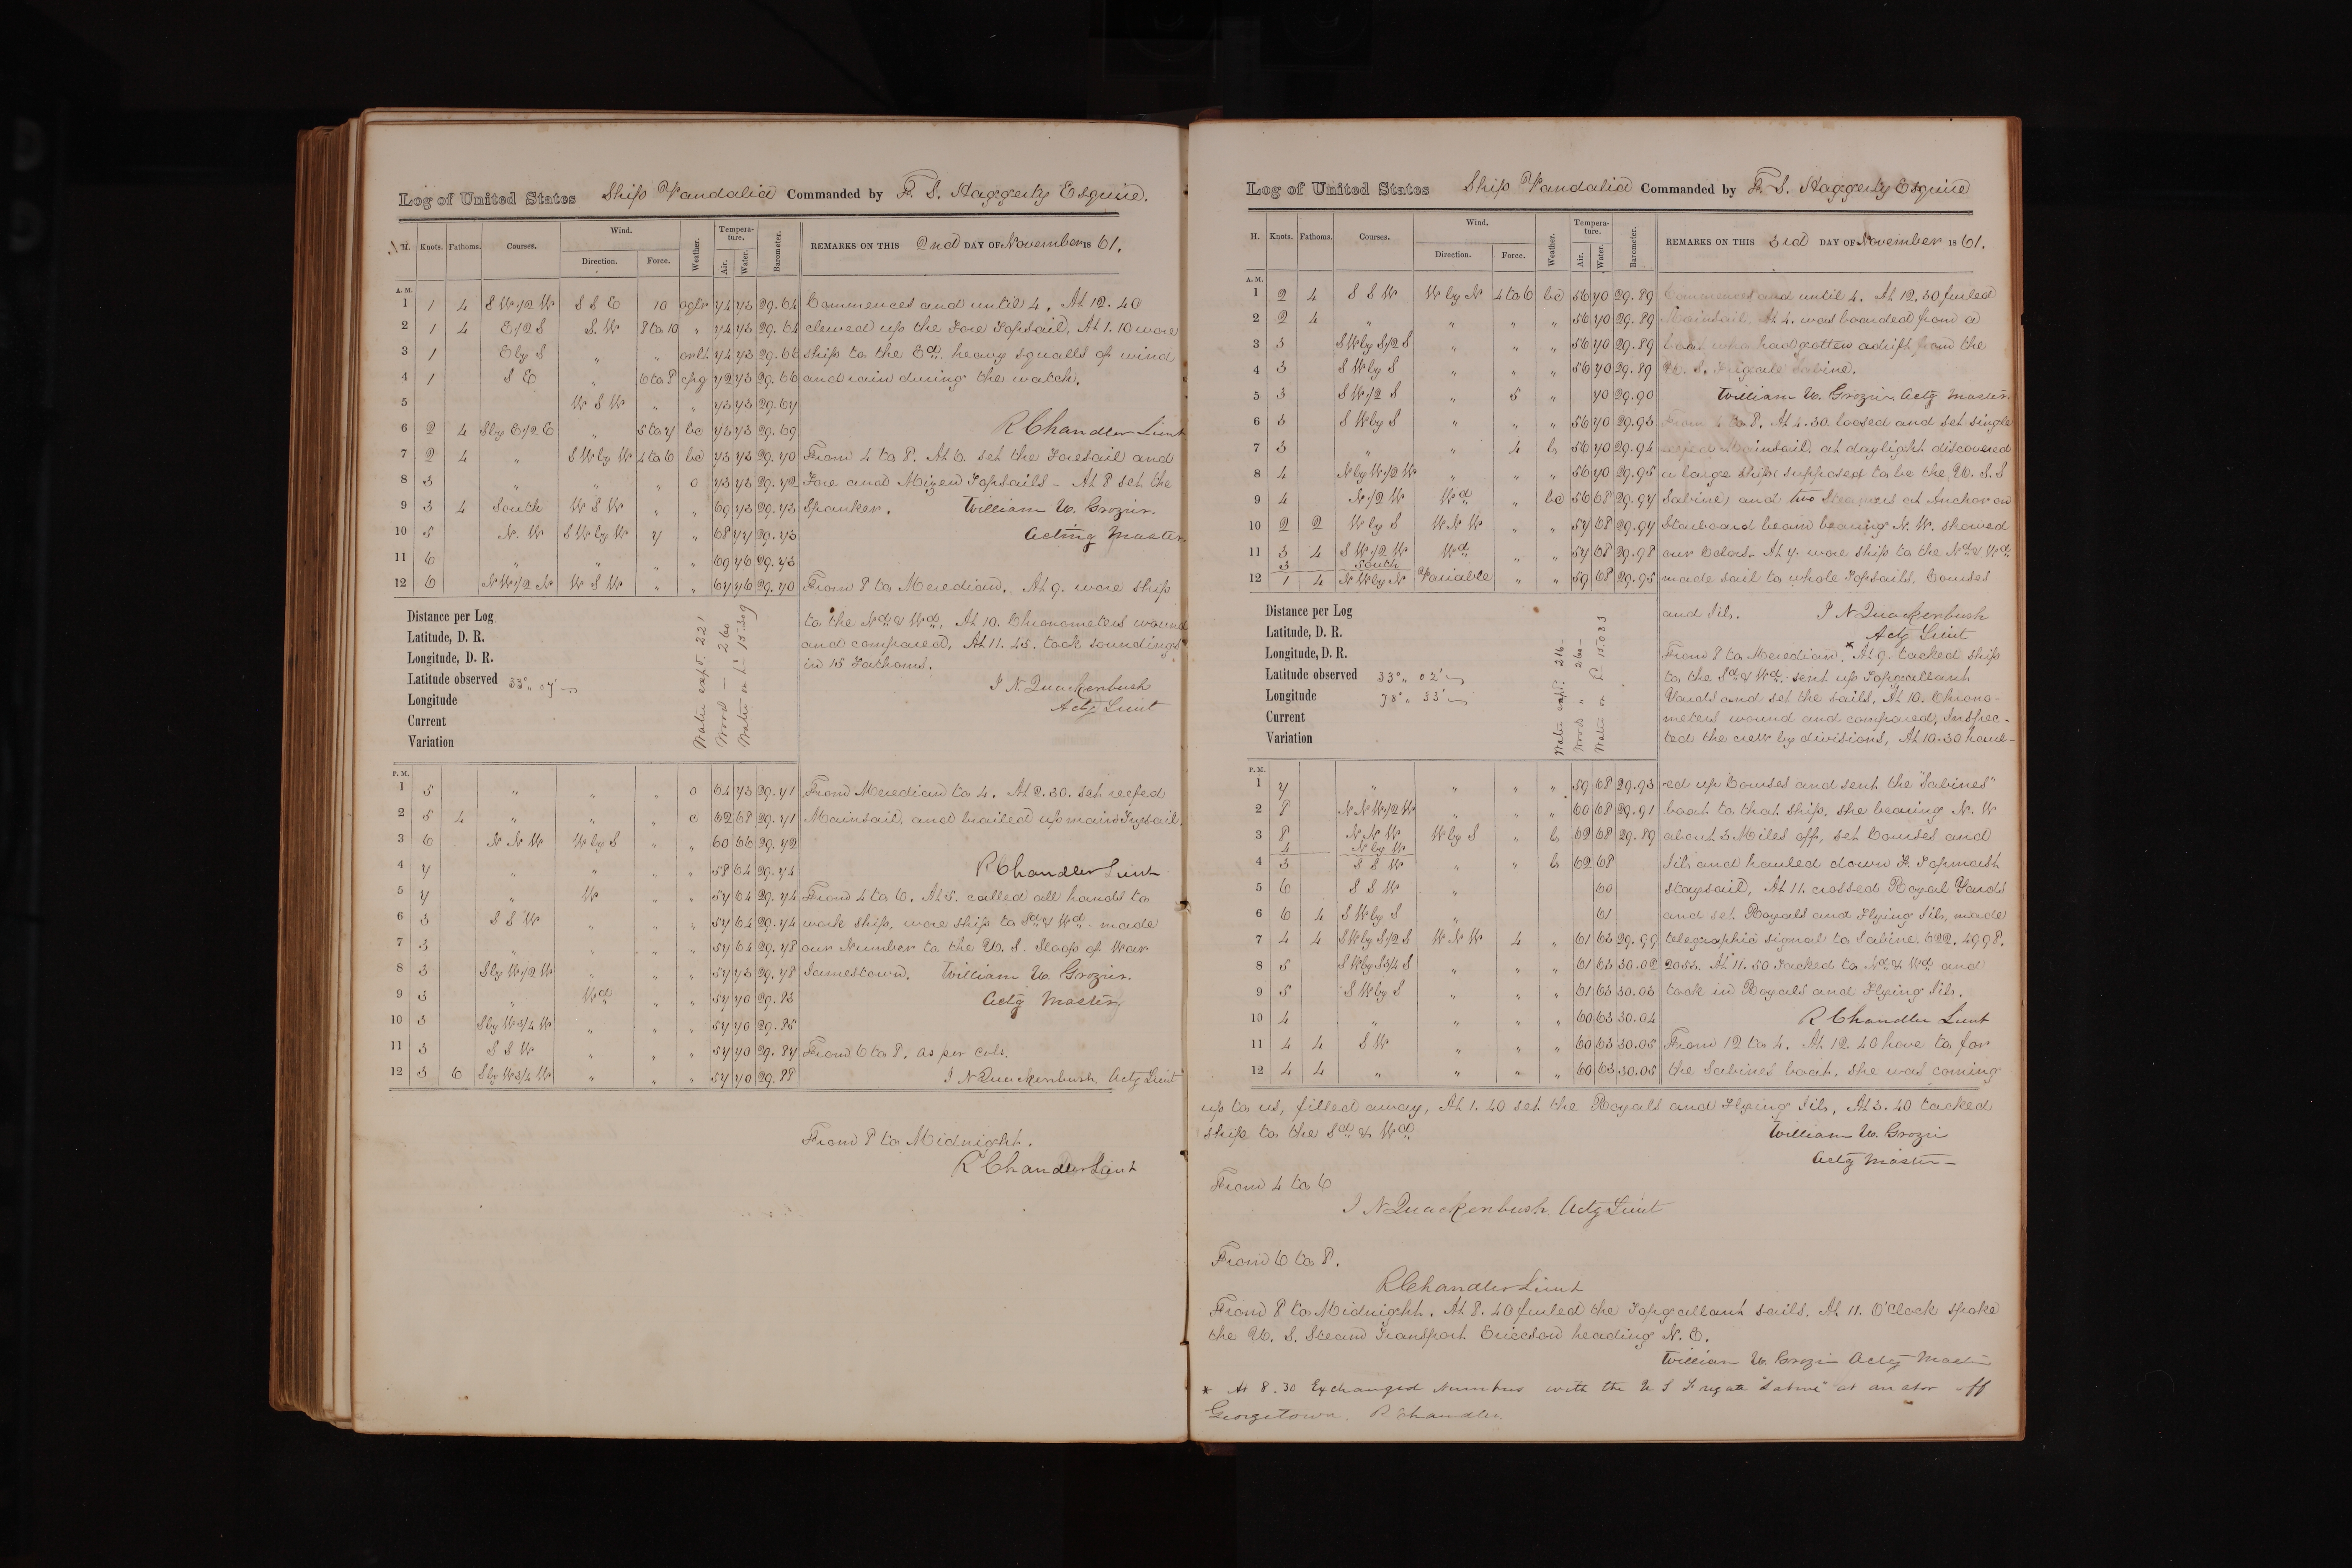 Log of United States Ship Vandalia Commanded by F. S. Haggerty Esquire.
H. Knots. Fathoms. Courses. Wind. Direction. Force. Weather. Temperature. Air. Water. Barometer. REMARKS ON THIS 2nd DAY OF November 1861.
A. M.
1 1 4 S W 1/2 W S S E 10 74 73 29.64 Commences and until 4. At 12.40
2 1 4 E 1/2 S S. W 8 to 10 " 74 73 29.64 clewed up the Fore Topsail. At 1.10 wore
3 1 E by S " " 74 73 29.66 ship to the Ed. heavy squalls of wind
4 1 S E " 6 to 8 72 73 29.66 and rain during the watch.
5 W S W " " 73 73 29.67
6 2 4 S by E 1/2 E " 5 to 7 bc 73 73 29.69 R Chandler Lieut
7 2 4 " S W by W 4 to 6 bc 73 73 29.70 From 4 to 8. At 6. set the Foresail and
8 3 " " " o 73 73 29.72 Fore and Mizen Topsails - At 8 set the
9 3 4 South W S W " " 69 73 29.73 Spanker. William U. Grozier.
10 5 N. W S W by W 7 " 68 77 29.73 Acting Master
11 6 " " " " 69 76 29.73
12 6 N W 1/2 N W S W " " 67 76 29.70 From 8 to Meredian. At 9. wore ship
Distance per Log to the Nd. & Wd. At 10. Chronometers wound
Latitude, D. R. and compared. At 11.45. took soundings
Longitude, D. R. in 15 Fathoms.
Latitude observed 33° " 07'
Longitude J. N. Quackenbush
Current Actg Lieut
Variation
Water expd. 221
Wood - 260
Water on Hd 15.
P. M.
1 5 " " " o 64 73 29.71 From Meredian to 4. At 2.30. set reefed
2 5 4 " " " c 62 68 29.71 Mainsail, and brailed up main Trysail.
3 6 N N W W by S " " 60 66 29.72
4 7 " " " " 58 64 29.74 R Chandler Lieut
5 7 " W " " 57 64 29.74 From 4 to 6. At 5. called all hands to
6 3 S S W " " " 57 64 29.74 work ship, wore ship to Sd & Wd. made
7 3 " " " " 57 64 29.78 our Number to the U. S. Sloop of War
8 3 S by W 1/2 W " " " 57 73 29.78 Jamestown. William U. Grozier.
9 3 " Wd " " 57 70 29.83 Actg Master
10 3 S by W 3/4 W " " " 57 70 29.85
11 3 S S W " " " 57 70 29.87 From 6 to 8. as per cols.
12 3 6 S by W 3/4 W " " " 57 70 29.88 J N Quackenbush Actg Lieut
From 8 to Midnight.
R Chandler Lieut
Log of United States Ship Vandalia Commanded by F. S. Haggerty Esquire
H. Knots. Fathoms. Courses. Wind. Direction. Force. Weather. Temperature. Air. Water. Barometer. REMARKS ON THIS 3rd DAY OF November 1861.
A. M.
1 2 4 S S W W by N 4 to 6 bc 56 70 29.89 Commences and until 4. At 12.30 furled
2 2 4 " " " " 56 70 29.89 Mainsail. At 4. was boarded from a
3 3 S W by S 1/2 S " " " 56 70 29.89 boat who had gotten adrift from the
4 3 S W by S " " " 56 70 29.89 U. S. Frigate Sabine.
5 3 S W 1/2 S " 5 " 70 29.90 William U. Grozier Actg Master.
6 3 S W by S " " " 56 70 29.93 From 4 to 8. At 4.30. loosed and set single
7 3 " " 4 b 56 70 29.94 reefed Mainsail, at daylight discovered
8 4 N by W 1/2 W " " " 56 70 29.95 a large ship (supposed to be the U. S. S
9 4 N 1/2 W Wd " bc 56 68 29.97 Sabine) and two Steamers at Anchor on
10 2 2 W by S W N W " " 57 68 29.97 Starboard beam bearing N. W. showed
11 3 4 S W 1/2 W Wd " " 57 68 29.98 our Colors. At 7. wore ship to the Nd & Wd
3 South
12 1 4 N W by N Variable " " 59 68 29.95 made sail to whole Topsails, Courses
Distance per Log and Jib. J N Quackenbush
Latitude, D. R. Actg Lieut
Longitude, D. R. From 8 to Meredian. * At 9. tacked ship
Latitude observed 33° " 02' to the Sd & Wd. sent up Topgallant
Longitude 78° " 33' Yards and set the sails. At 10. Chrono-
Current meters wound and compared, Inspec-
Variation ted the crew by divisions, At 10.30 haul-
Water expd. 216
Wood " 260
Water on Hd 15.083
P. M.
1 7 " " " " 59 68 29.93 -ed up Courses and sent the "Sabines"
2 8 N N W 1/2 W " " " 60 68 29.91 boat to that ship. she bearing N. W
3 8 N N W W by S " b 62 68 29.89 about 3 Miles off, set Courses and
4 N by W
4 3 S S W " " b 62 68 Jib and hauled down F. Topmast
5 6 S S W " 60 staysail, At 11. crossed Royal Yards
6 6 4 S W by S " 61 and set Royals and Flying Jib, made
7 4 4 S W by S 1/2 S W N W 4 " 61 63 29.99 telegraphic signal to Sabine. 622. 4998.
8 5 S W by S 3/4 S " " " 61 63 30.02 2053. At 11.50 Tacked to Nd & Wd and
9 5 S W by S " " " 61 63 30.03 took in Royals and Flying Jib.
10 4 " " " " 60 63 30.04 R Chandler Lieut
11 4 4 S W " " " 60 63 30.05 From 12 to 4. At 12.40 hove to for
12 4 4 " " " " 60 63 30.05 the Sabines boat, she was coming
up to us, filled away, At 1.40 set the Royals and Flying Jib, At 3.40 tacked
ship to the Sd & Wd William U. Grozier
Actg Master
From 4 to 6
J N Quackenbush Actg Lieut
From 6 to 8.
R Chandler Lieut
From 8 to Midnight. At 8.40 furled the Topgallant sails. At 11. O'Clock spoke
the U. S. Steam Transport Ericcson heading N. E.
William U. Grozier Actg Master
* At 8.30 Exchanged Numbers with the U S Frigate "Sabine" at anchor off
Georgetown. R Chandler